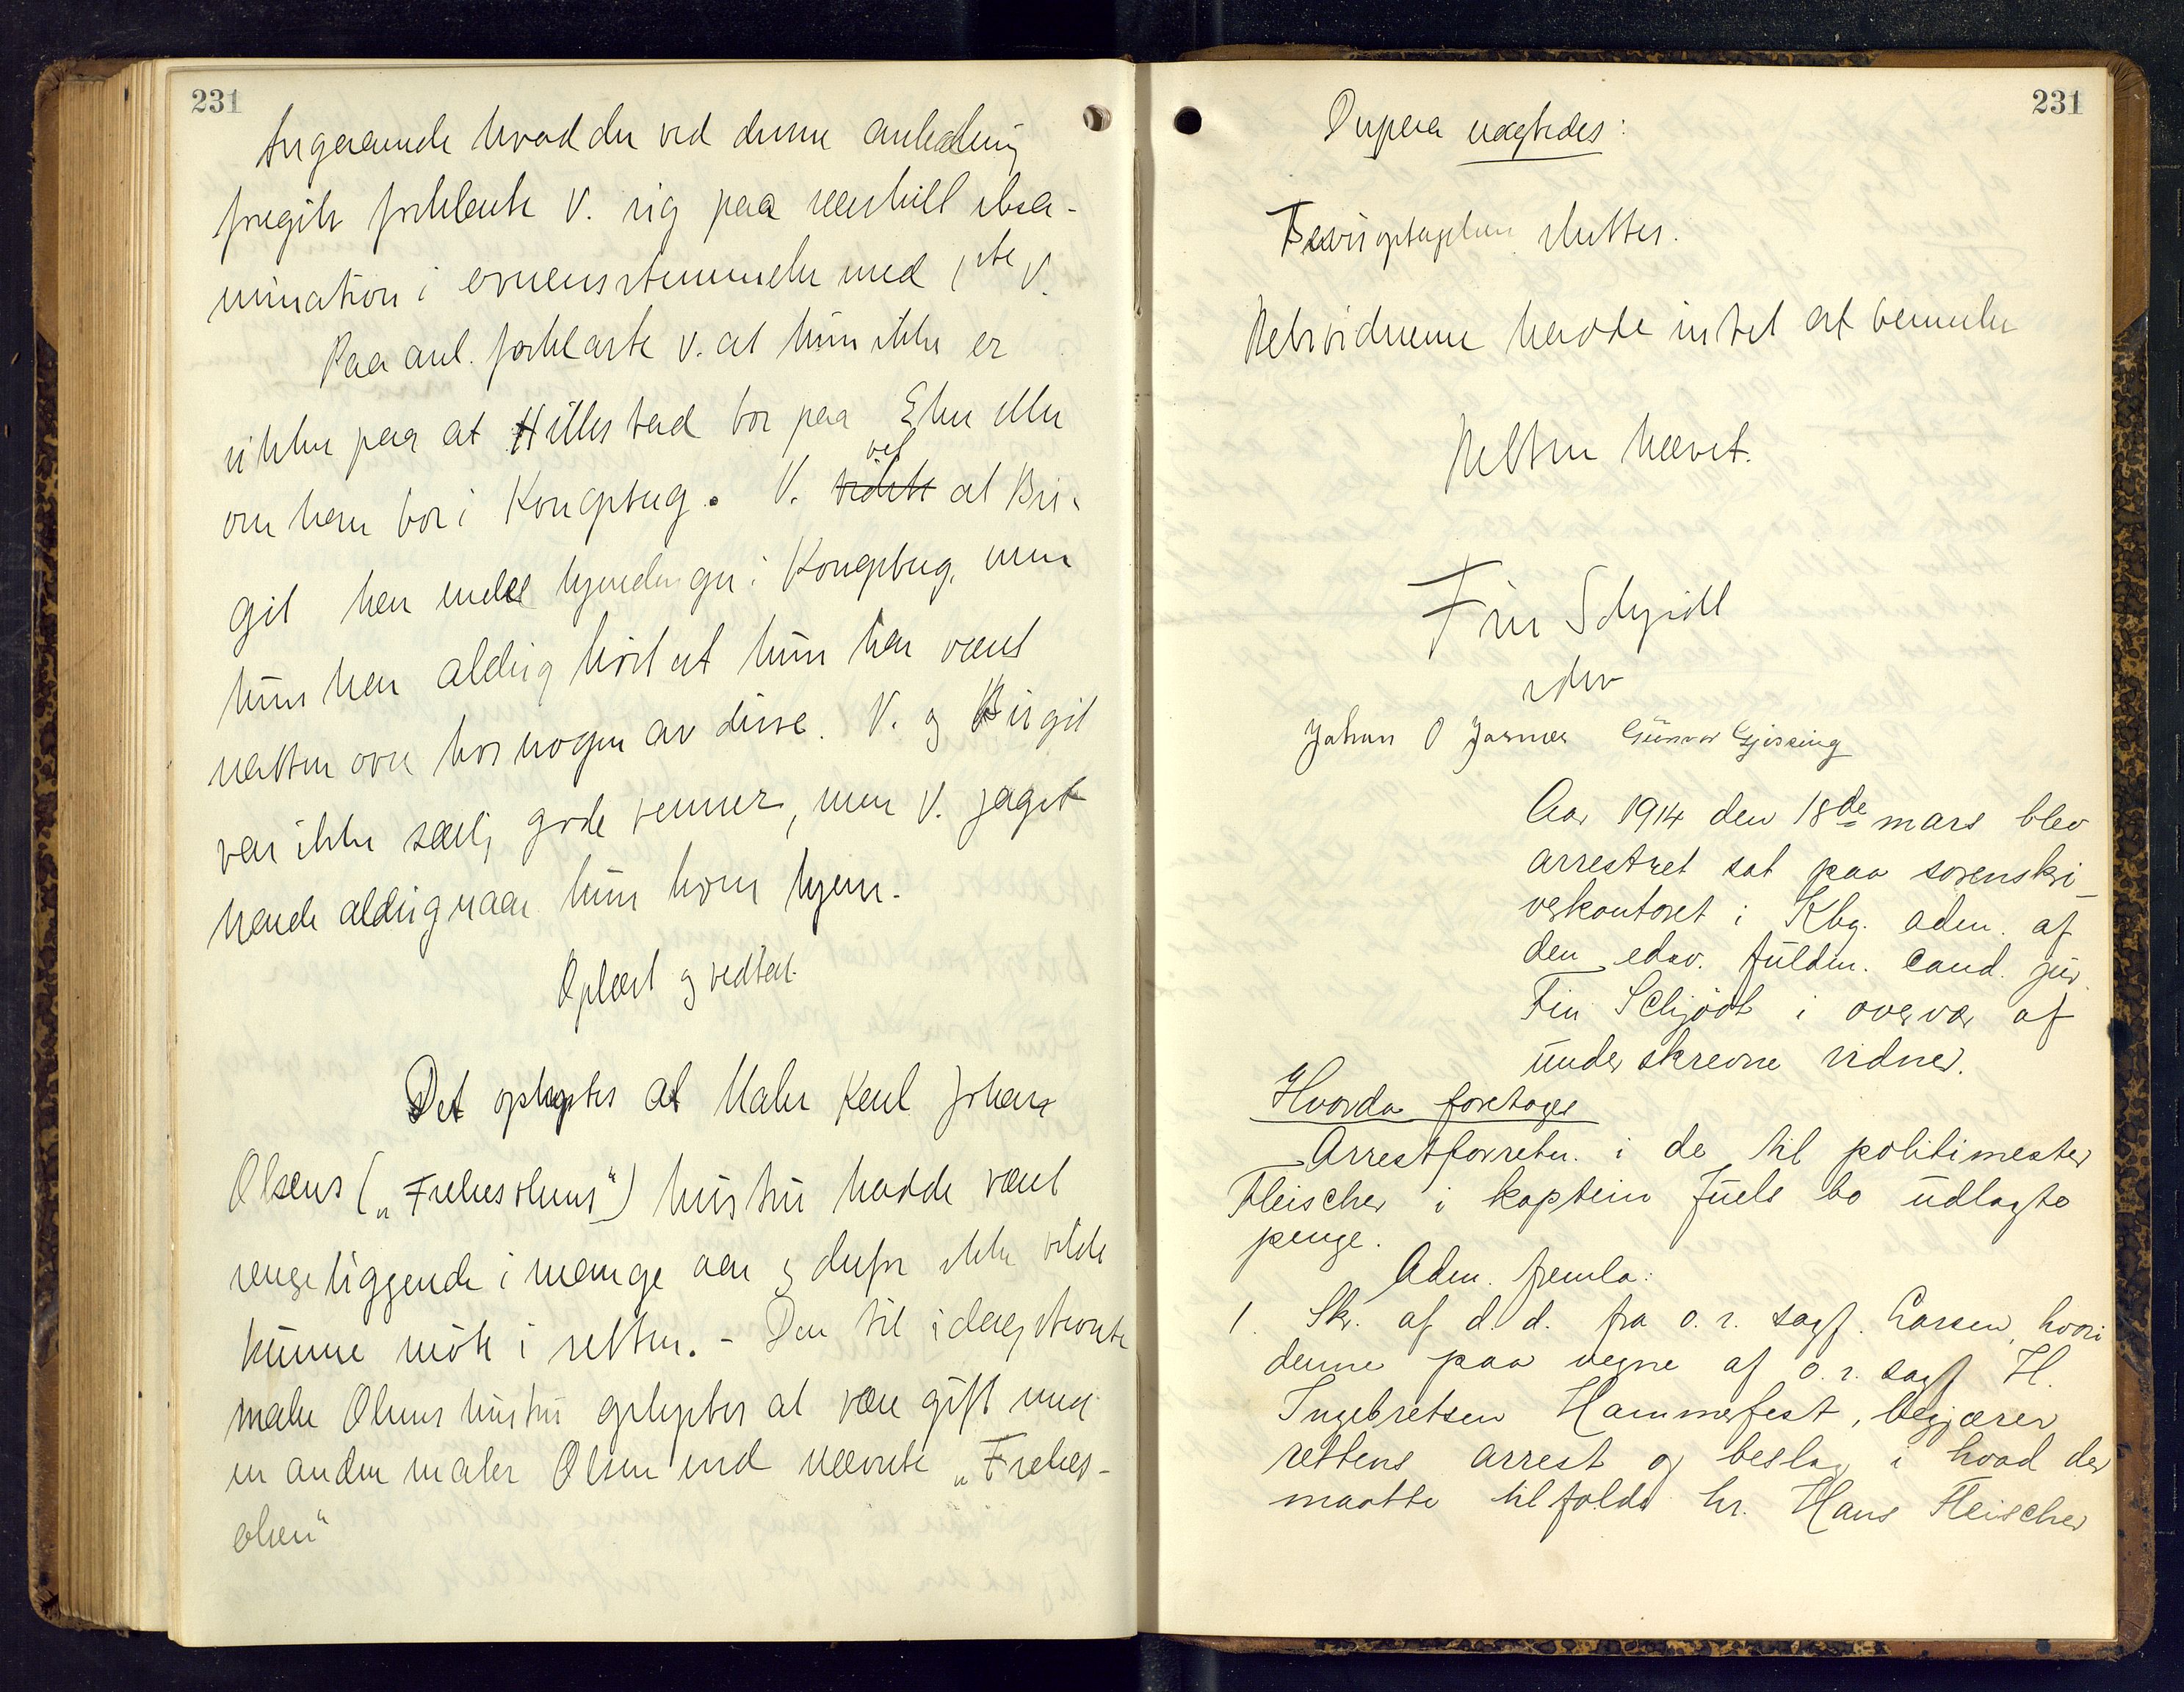 231
Angaaende hvad der ved denne anledning
foregik forklarte V. sig paa særskilt exa-
mination i overensstemmelse med 1ste V.
Paa anl. forklarte V. at hun ikke er
sikker paa at Hillestad bor paa Eker eller
om han bor i Kongsberg. V. vidste vet at Bir-
git har endel kjendinger i Kongsberg, men
hun har aldrig hørt at hun har været
natten over hos nogen av disse. V. og Birgit
var ikke særlig gode venner, men V. jaget
hende aldrig naar hun kom hjem.
Oplæst og vedtat.
Det oplystes at Maler Karl Johan
Olsens („Frelsesolsens") hustru hadde været
sengeliggende i mange aar og derfor ikke vilde
kunne møte i retten. - Den til idag stevnte
maler Olsens hustru oplystes at være gift med
en anden maler Olsen end nævnte „Frelses-
olsen"
231
Derpaa vægtedes:
Bevisoptagelsen sluttes.
Retsvidnerne havde intet at bemerke
Retten hævet.
Fin Schjødt
edsv
Johan O Jarmer Gunnar Gjessing
Aar 1914 den 18de mars blev
arrestret sat paa sorenskri-
verkontoret i Kbg. adm. af
den edsv. fuldm. cand. jur.
Fin Schjødt i overvær af
underskrevne vidner.
Hvorda foretoges
Arrestforretn. i de til politimester
Fleischer i kaptein Juels bo udlagte
penge.
Adm. fremla:
1. Skr. af d. d. fra o.r. sagf. Larsen, hvori
denne paa vegne af o.r. sagf H.
Ingebretsen Hammerfest, begjærer
rettens arrest og beslag i hvad der
maatte tilfalde hr. Hans Fleischer